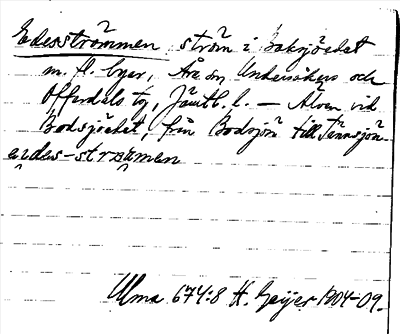 Edesströmmen ström i Boksjöedet
m. fl. byar, Åre sn, Undersåkers och
Offerdals tg, Jämtl. l. — Älven vid
Bodsjöedet, från Bodsjön till Ännsjön.
eides-stræmen
Ulma 674:8 H. Geijer 1904-09.